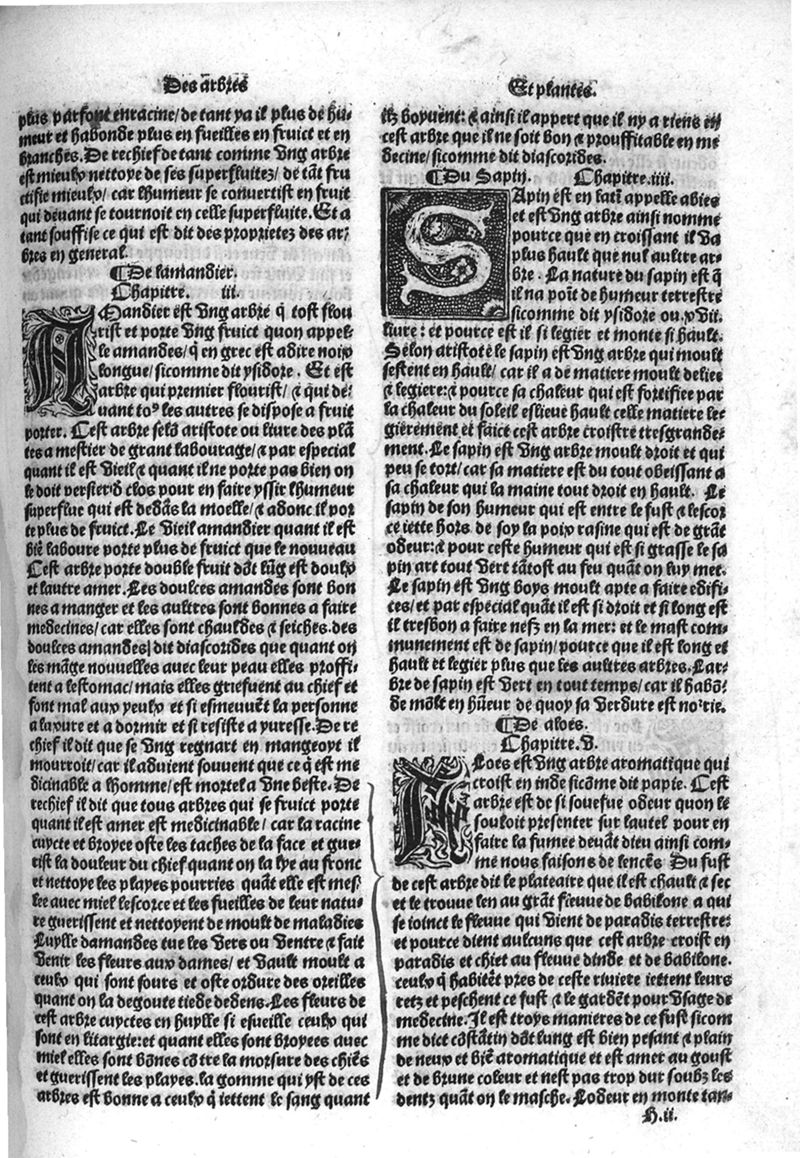 Des arbres
plus parfont enracine/de tant ya il plus de hu⸗
meur et habonde plus en fueilles en fruict et en
branches. De rechief de tant comme vng arbre
est mieulx nettoye de ses superfluitez/de tāt fru
ctifie mieulx/ car lhumeur se convertist en fruit
qui devant se tournoit en celle superfluite. Et a
tant souffise ce qui est dit des proprietez des ar⸗
bres en general.
¶De lamandier.
Chapitre. iii.
AMandier est vng arbre q̄ tost flou
rist et porte vng fruict quon appel⸗
le amandes/q̄ en grec est adire noix
longue/sicomme dit ysidore. Et est
arbre qui premier flourist/⁊ qui de⸗
uant toꝰ les autres se dispose a fruit
porter. Cest arbre selō aristote ou liure des plā
tes a mestier de grant labourage/⁊ par especial
quant il est vieil ⁊ quant il ne porte pas bien on
le doit
clos pour en faire yssir lhumeur
superflue qui est dedās la moelle/⁊ adonc il por
te plus de fruict. Le vieil amandier quant il est
biē laboure porte plus de fruict que le nouveau
Cest arbre porte double fruit dōt lūg est doulx
et lautre amer. Les doulces amandes sont bon
nes a manger et les aultres sont bonnes a faire
medecines/car elles sont chauldes ⁊ seiches. des
doulces amandes dit diascorides que quant on
les māge nouvelles avec leur peau elles proffi⸗
tent a lestomac/mais elles griefuent au chief et
font mal aux yeulx et si esmeuuēt la personne
a luxure et a dormir et si resiste a yuresse. De re
chief il dit que se vng regnart en mangeoyt il
mourroit/car il aduient souvent que ce q̄ est me
dicinable a lhomme/est mortel a vne beste. De
rechief il dit que tous arbres qui se fruict porte
quant il est amer est medicinable/ car la racine
cuycte et broyee oste les taches de la face et gue⸗
rist la douleur du chief quant on la lye au fronc
et nettoye les playes pourries quāt elle est mes⸗
lee avec miel lescorce et les fueilles de leur natu⸗
re guerissent et nettoyent de moult de maladies
Luylle damandes tue les vers ou ventre ⁊ fait
venir les fleurs aux dames/ et vault moult a
ceulx qui sont sours et oste ordure des oreilles
quant on la degoute tiede dedens. Les fleurs de
cest arbre cuyctes en huylle si esueille ceulx qui
sont en litargie: et quant elles sont broyees avec
miel elles sont bōnes cōtre la morsure des chiēs
et guerissent les playes. la gomme qui yst de ces
arbres est bonne a ceulx q̄ iettent le sang quant
Et plantes.
ilz boyuent: ⁊ ainsi il appert que il ny a riens en
cest arbre que il ne soit bon ⁊ prouffitable en me
decine/sicomme dit diascorides.
¶Du Sapin. Chapitre.iiii.
SApin est en latī appelle abies
et est vng arbre ainsi nomme
pource que en croissant il va
plus hault que nul aultre ar⸗
bre. La nature du sapin est q̄
il na poīt de humeur terrestre
sicomme dit ysidore ou .xvii.
liure: et pource est il si legier et monte si hault.
Selon aristote le sapin est vng arbre qui moult
sestent en hault/ car il a de matiere moult deliee
⁊ legiere:⁊ pource sa chaleur qui est fortifiee par
la chaleur du soleil eslieve hault celle matiere le⸗
gierement et faict cest arbre croistre tresgrande⸗
ment. Le sapin est vng arbre moult droit et qui
peu se tort/car sa matiere est du tout obeissant a
sa chaleur qui la maine tout droit en hault. Le
sapin de son humeur qui est entre le fust ⁊ lescor
ce iette hors de soy la poix rasine qui est de grāt
odeur:⁊ pour ceste humeur qui est si grasse le sa
pin art tout vert tātost au feu quāt on luy met.
Le sapin est vng boys moult apte a faire edifi⸗
ces/et par especial quāt il est si droit et si long est
il tresbon a faire nefz en la mer: et le mast com⸗
munement est de sapin/pource que il est long et
hault et legier plus que les aultres arbres. Lar⸗
bre de sapin est vert en tout temps/ car il habō⸗
de mōlt en hūeur de quoy sa verdure est
¶De aloes.
Chapitre.v.
ALoes est vng arbre aromatique qui
croist en inde sicōme dit papie. Cest
arbre est de si souefue odeur quon le
souloit presenter sur lautel pour en
faire la fumee deuāt dieu ainsi com⸗
me nous faisons de lencēs. Du fust
de cest arbre dit le plateaire que il est chault ⁊ sec
et le trouue len au grāt fleuue de babilone a qui
se ioinct le fleuue qui vient de paradis terrestre:
et pource dient aulcuns que cest arbre croist en
paradis et chiet au fleuue dinde et de babilone.
ceulx q̄ habitēt pres de ceste riviere iettent leurs
retz et peschent ce fust ⁊ le gardēt pour vsage de
medecine. Il est troys manieres de ce fust sicom
me dict cōstātin dōt lung est bien pesant ⁊ plain
de neux et biē aromatique et est amer au goust
et de brune coleur et nest pas trop dur soubz les
dentz quāt on le masche. Lodeur en monte tan⸗
H.ii.